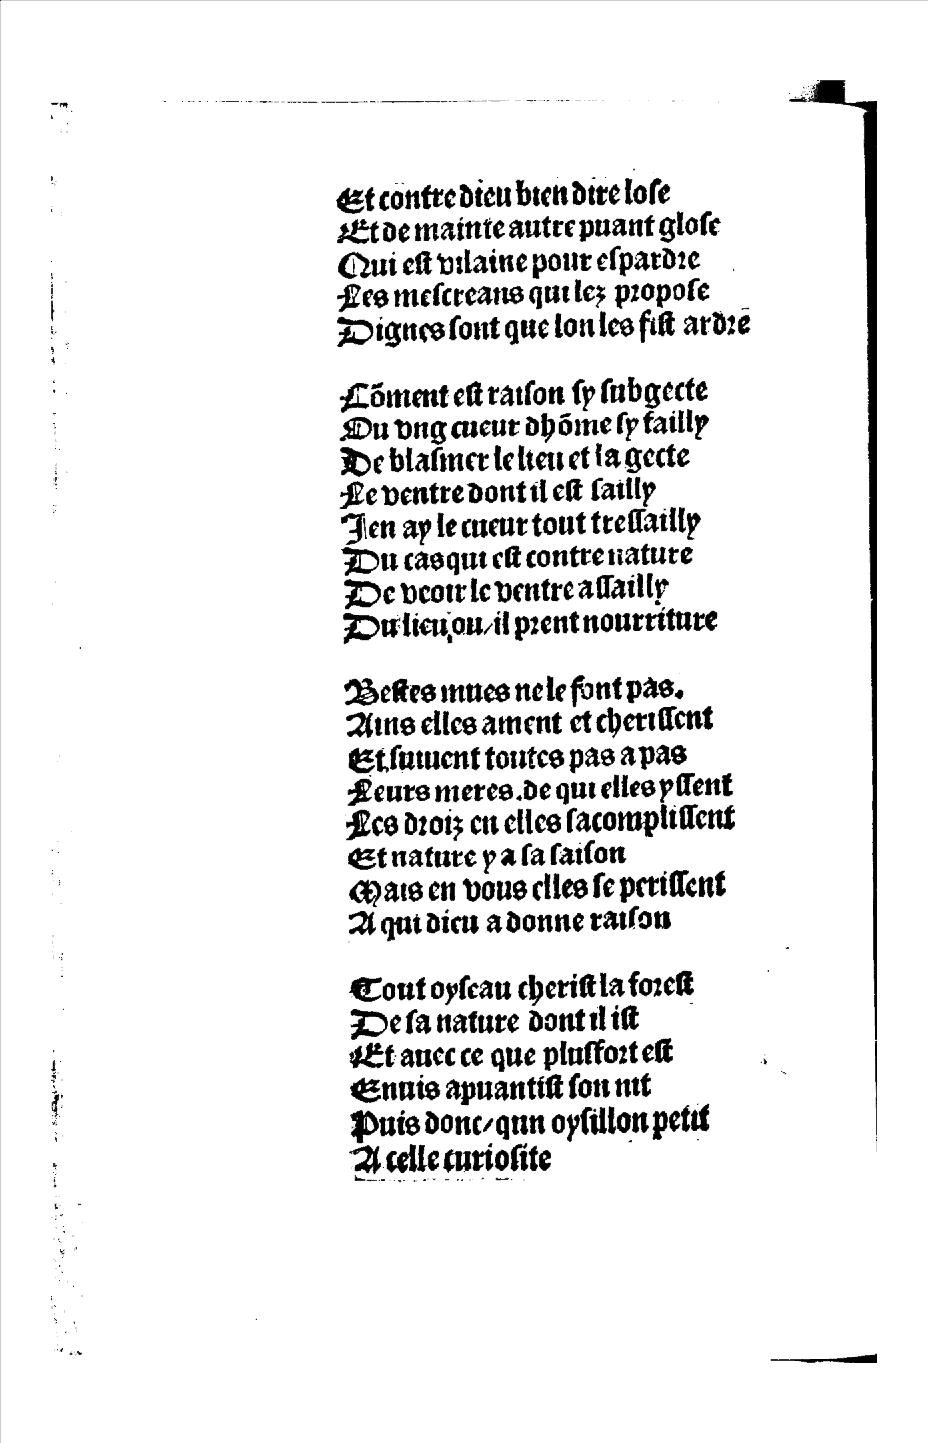 Et contre dieu bien dire lose
Et de mainte autre puant glose
Qui est vilaine pour espardre
Les mescreans qui lez propose
Dignes sont que lon les fist ardrē
Cōment est raison sy subgecte
Ou vng cueur dhōme sy failly
De blasmer le lieu et la gecte
Le ventre dont il est sailly
Jen ay le cueur tout tressailly
Du cas qui est contre nature
De veoir le ventre assailly
Du lieu ou/il prent nourriture
Bestes mues ne le font pas.
Ains elles ament et cherissent
Et suiuent toutes pas a pas
Leurs meres.de qui elles yssent
Les droiz en elles sacomplissent
Et nature y a sa saison
Mais en vous elles se perissent
A qui dieu a donne raison
Tout oyseau cherist la forest
De sa nature dont il ist
Et auec ce que plusfort est
Ennis apuantist son nit
Puis donc/qun oysillon petit
A celle curiosite